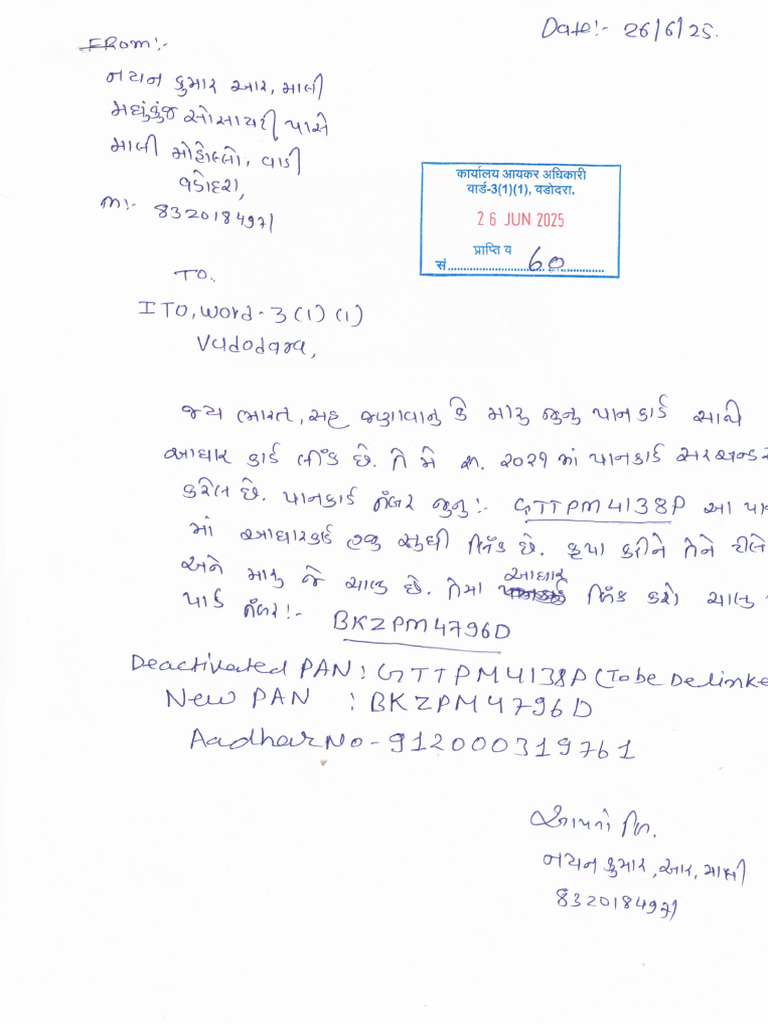 Date:- 26/6/25.
FROM:-
નયન કુમાર આર, માલી
મધુકુંજ સોસાયટી પાસે
માલી મોહોલ્લો, વાડી
વડોદરા,
m:- 8320184971
कार्यालय आयकर अधिकारी
वार्ड-3(1)(1), वडोदरा.
26 JUN 2025
प्राप्ति य
सं. 60
TO,
ITO, Word - 3(1)(1)
Vadodara,
જય ભારત, સહ જણાવાનુ કે મારૂ જુનુ પાનકાર્ડ સાથે
આધાર કાર્ડ લીંક છે. તે મે સ. ૨૦૨૧ માં પાનકાર્ડ સરઅન્ડર
કરેલ છે. પાનકાર્ડ નંબર જુનુ:- GTTPM4138P આ
માં આધારકાર્ડ હજુ સુધી લિંક છે. કૃપા કરીને તેને
અને મારૂ જે ચાલુ છે. તેમા આધાર લિંક કરો ચાલુ
પાર્ડ નંબર:- BKZPM4796D
Deactivated PAN: GTTPM4138P (To be Delinke
New PAN : BKZPM4796D
Aadhar No - 912000319761
આપનો વિ.
નયન કુમાર, આર, માલી
8320184971